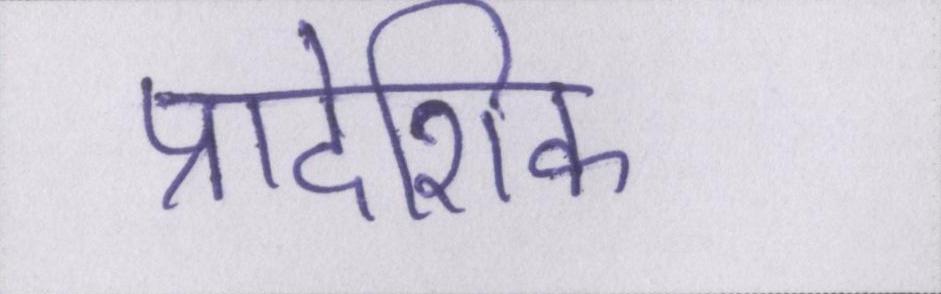 प्रादेशिक